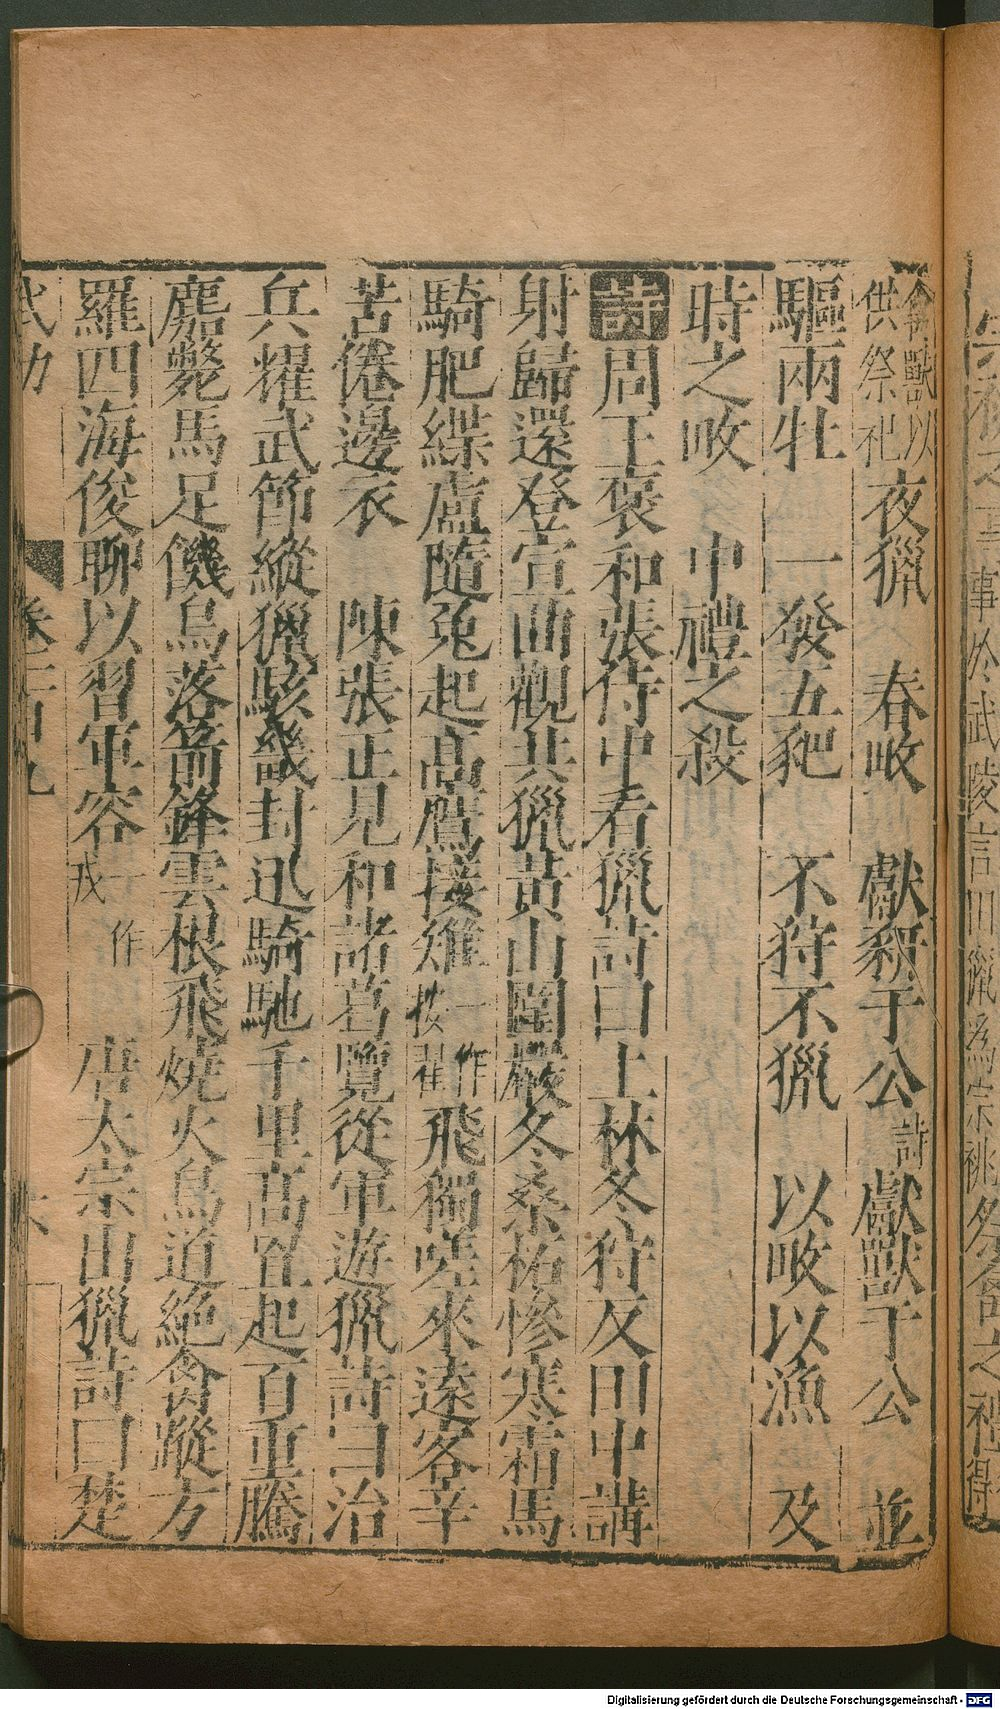 禽獸以
供祭祀夜獵 春畋 獻豜于公詩獻獸于公 並
驅兩牡 一發五豝 不狩不獵 以畋以漁 及
時之畋 中禮之殺
詩周王褒和張侍中看獵詩曰上林冬狩反田中講
射歸還登宣曲觀共獵黃山圍嚴冬桑柘慘寒霜馬
騎肥緤盧隨兔起高鷹接雉一作按翟飛獨嗟來遠客辛
苦倦邊衣 陳張正見和諸葛覽從軍遊獵詩曰治
兵耀武節縱獵駭畿封迅騎馳千里高罝起百重騰
麏斃馬足饑鳥落箭鋒雲根飛燒火鳥道絕禽蹤方
羅四海俊聊以習軍容一作戎 唐太宗山獵詩曰楚
武功 卷一百九
Digitalisierung gefördert durch die Deutsche Forschungsgemeinschaft - DFG